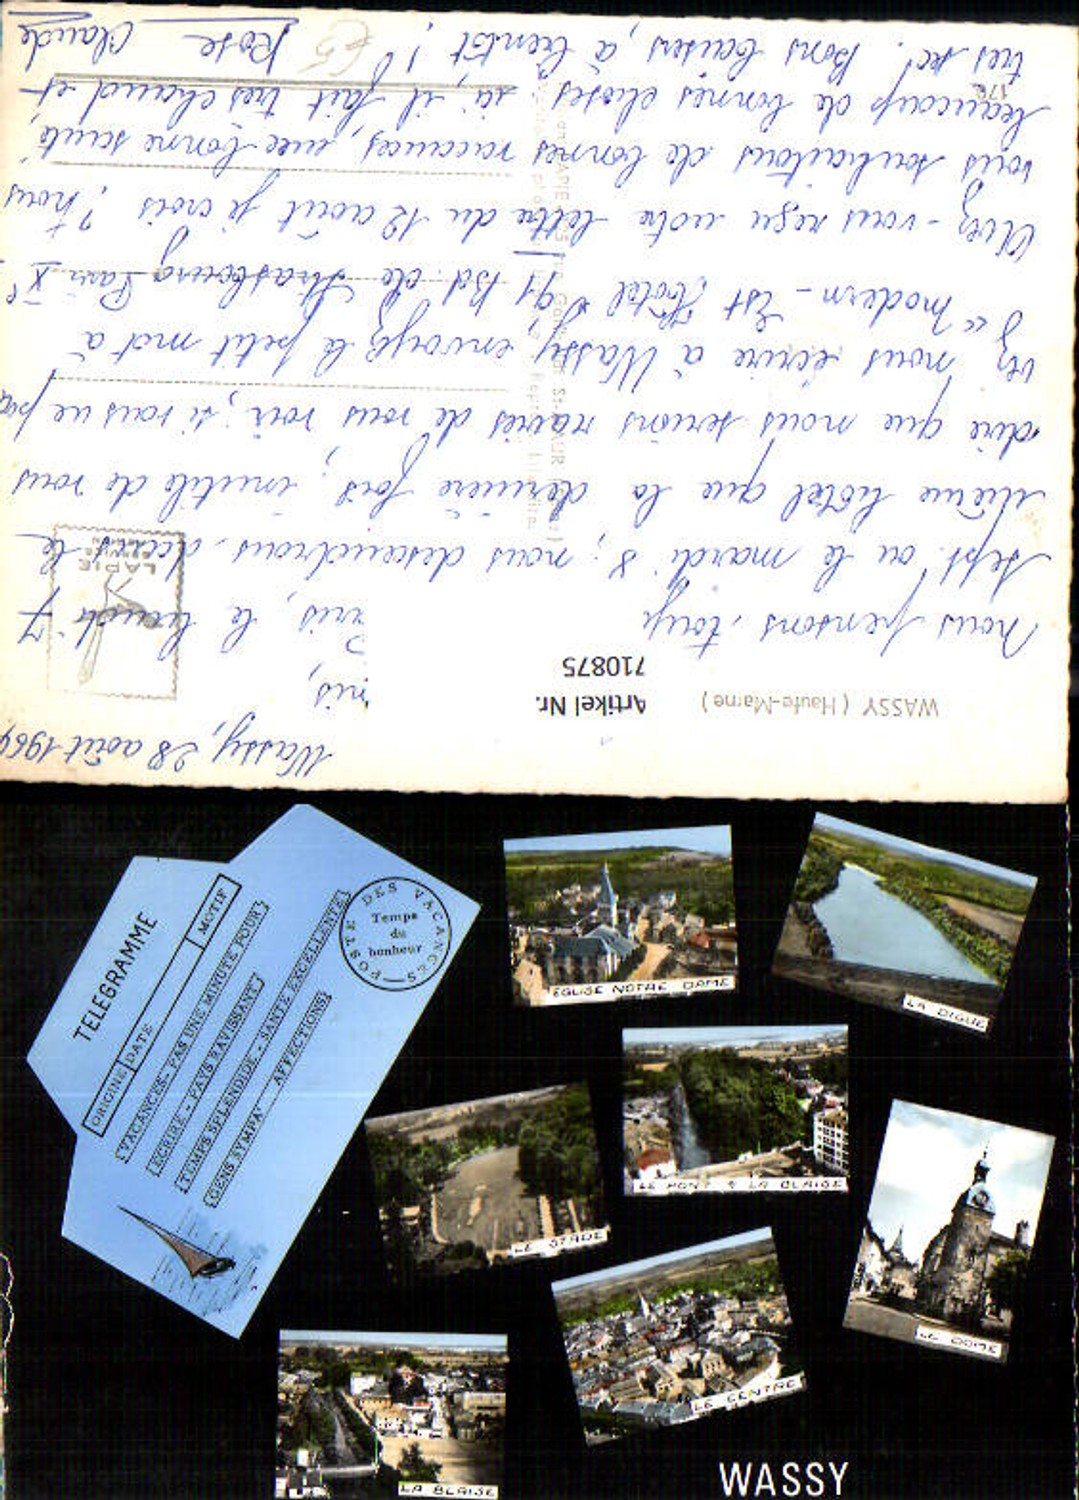 Wassy, 28 août 1964
WASSY ( Haute-Marne )
Artikel Nr.
710875
LAPIE
nous pensons,
ris, le lundi 7
sept. ou le mardi 8; nous descendrons dans le
même hôtel que la dernière fois; inutile de vous
dire que nous serions ravies de vous voir; si vous ne
nous écrire à Wassy, envoyez le petit mot à
"modern - Est Hôtel" 91 Bd. de Strasbourg Paris Xe
Avez-vous reçu notre lettre du 12 août je crois ? nous
vous souhaitons de bonnes vacances, une bonne santé,
beaucoup de bonnes choses; ici, il fait très chaud et
très sec! Bons baisers, à bientôt !
Rose Claude
TELEGRAMME
ORIGINE DATE MOTIF
VACANCES - PAS UNE MINUTE POUR
ECRIRE - PAYS RAVISSANT
TEMPS SPLENDIDE - SANTE EXCELLENTE
GENS SYMPA' AFFECTIONS
POSTE DES VACANCES
Temps
du
bonheur
EGLISE NOTRE DAME
LA DIGUE
LE PONT & LA BLAISE
LE STADE
LE DOME
LE CENTRE
LA BLAISE
WASSY